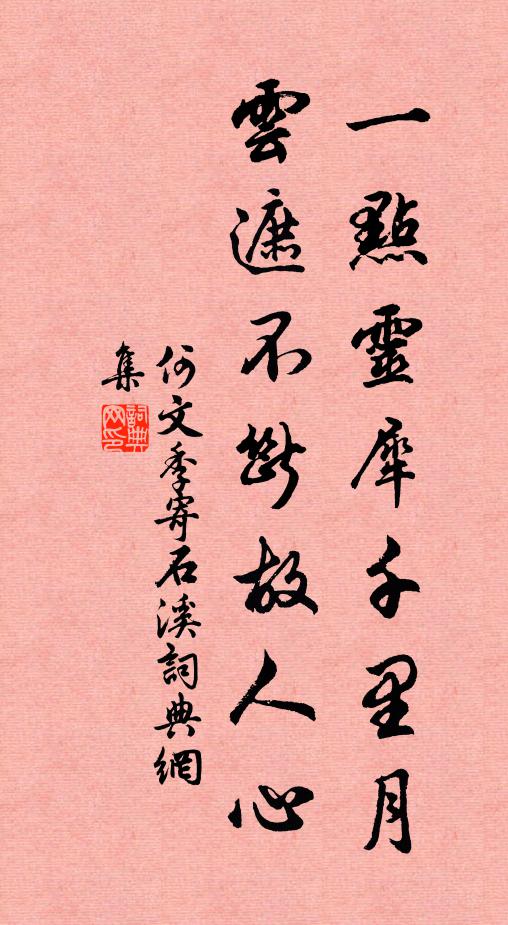 一點靈犀千里月
雲遮不斷故人心
何文季寄石溪詞典網
集
詞典
网印